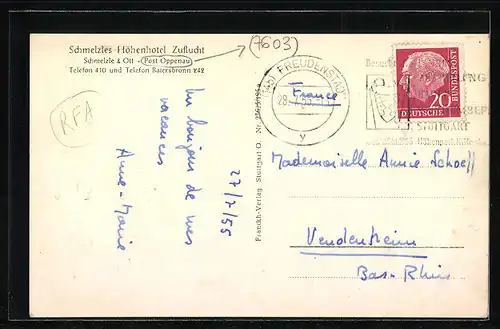 Schmelzles Höhenhotel Zuflucht
Schmelzle & Ott - Post Oppenau
Telefon 410 und Telefon Baiersbronn 242
(7603)
RFA
Un bonjour de mes
vacances
Anne-Marie
27/7/55
Franckh-Verlag Stuttgart O. Nr.
FREUDENSTADT
28.7.55
STUTTGART
20
DEUTSCHE
BUNDESPOST
France
Mademoiselle Annie Schoeff
Vendenheim
Bas-Rhin